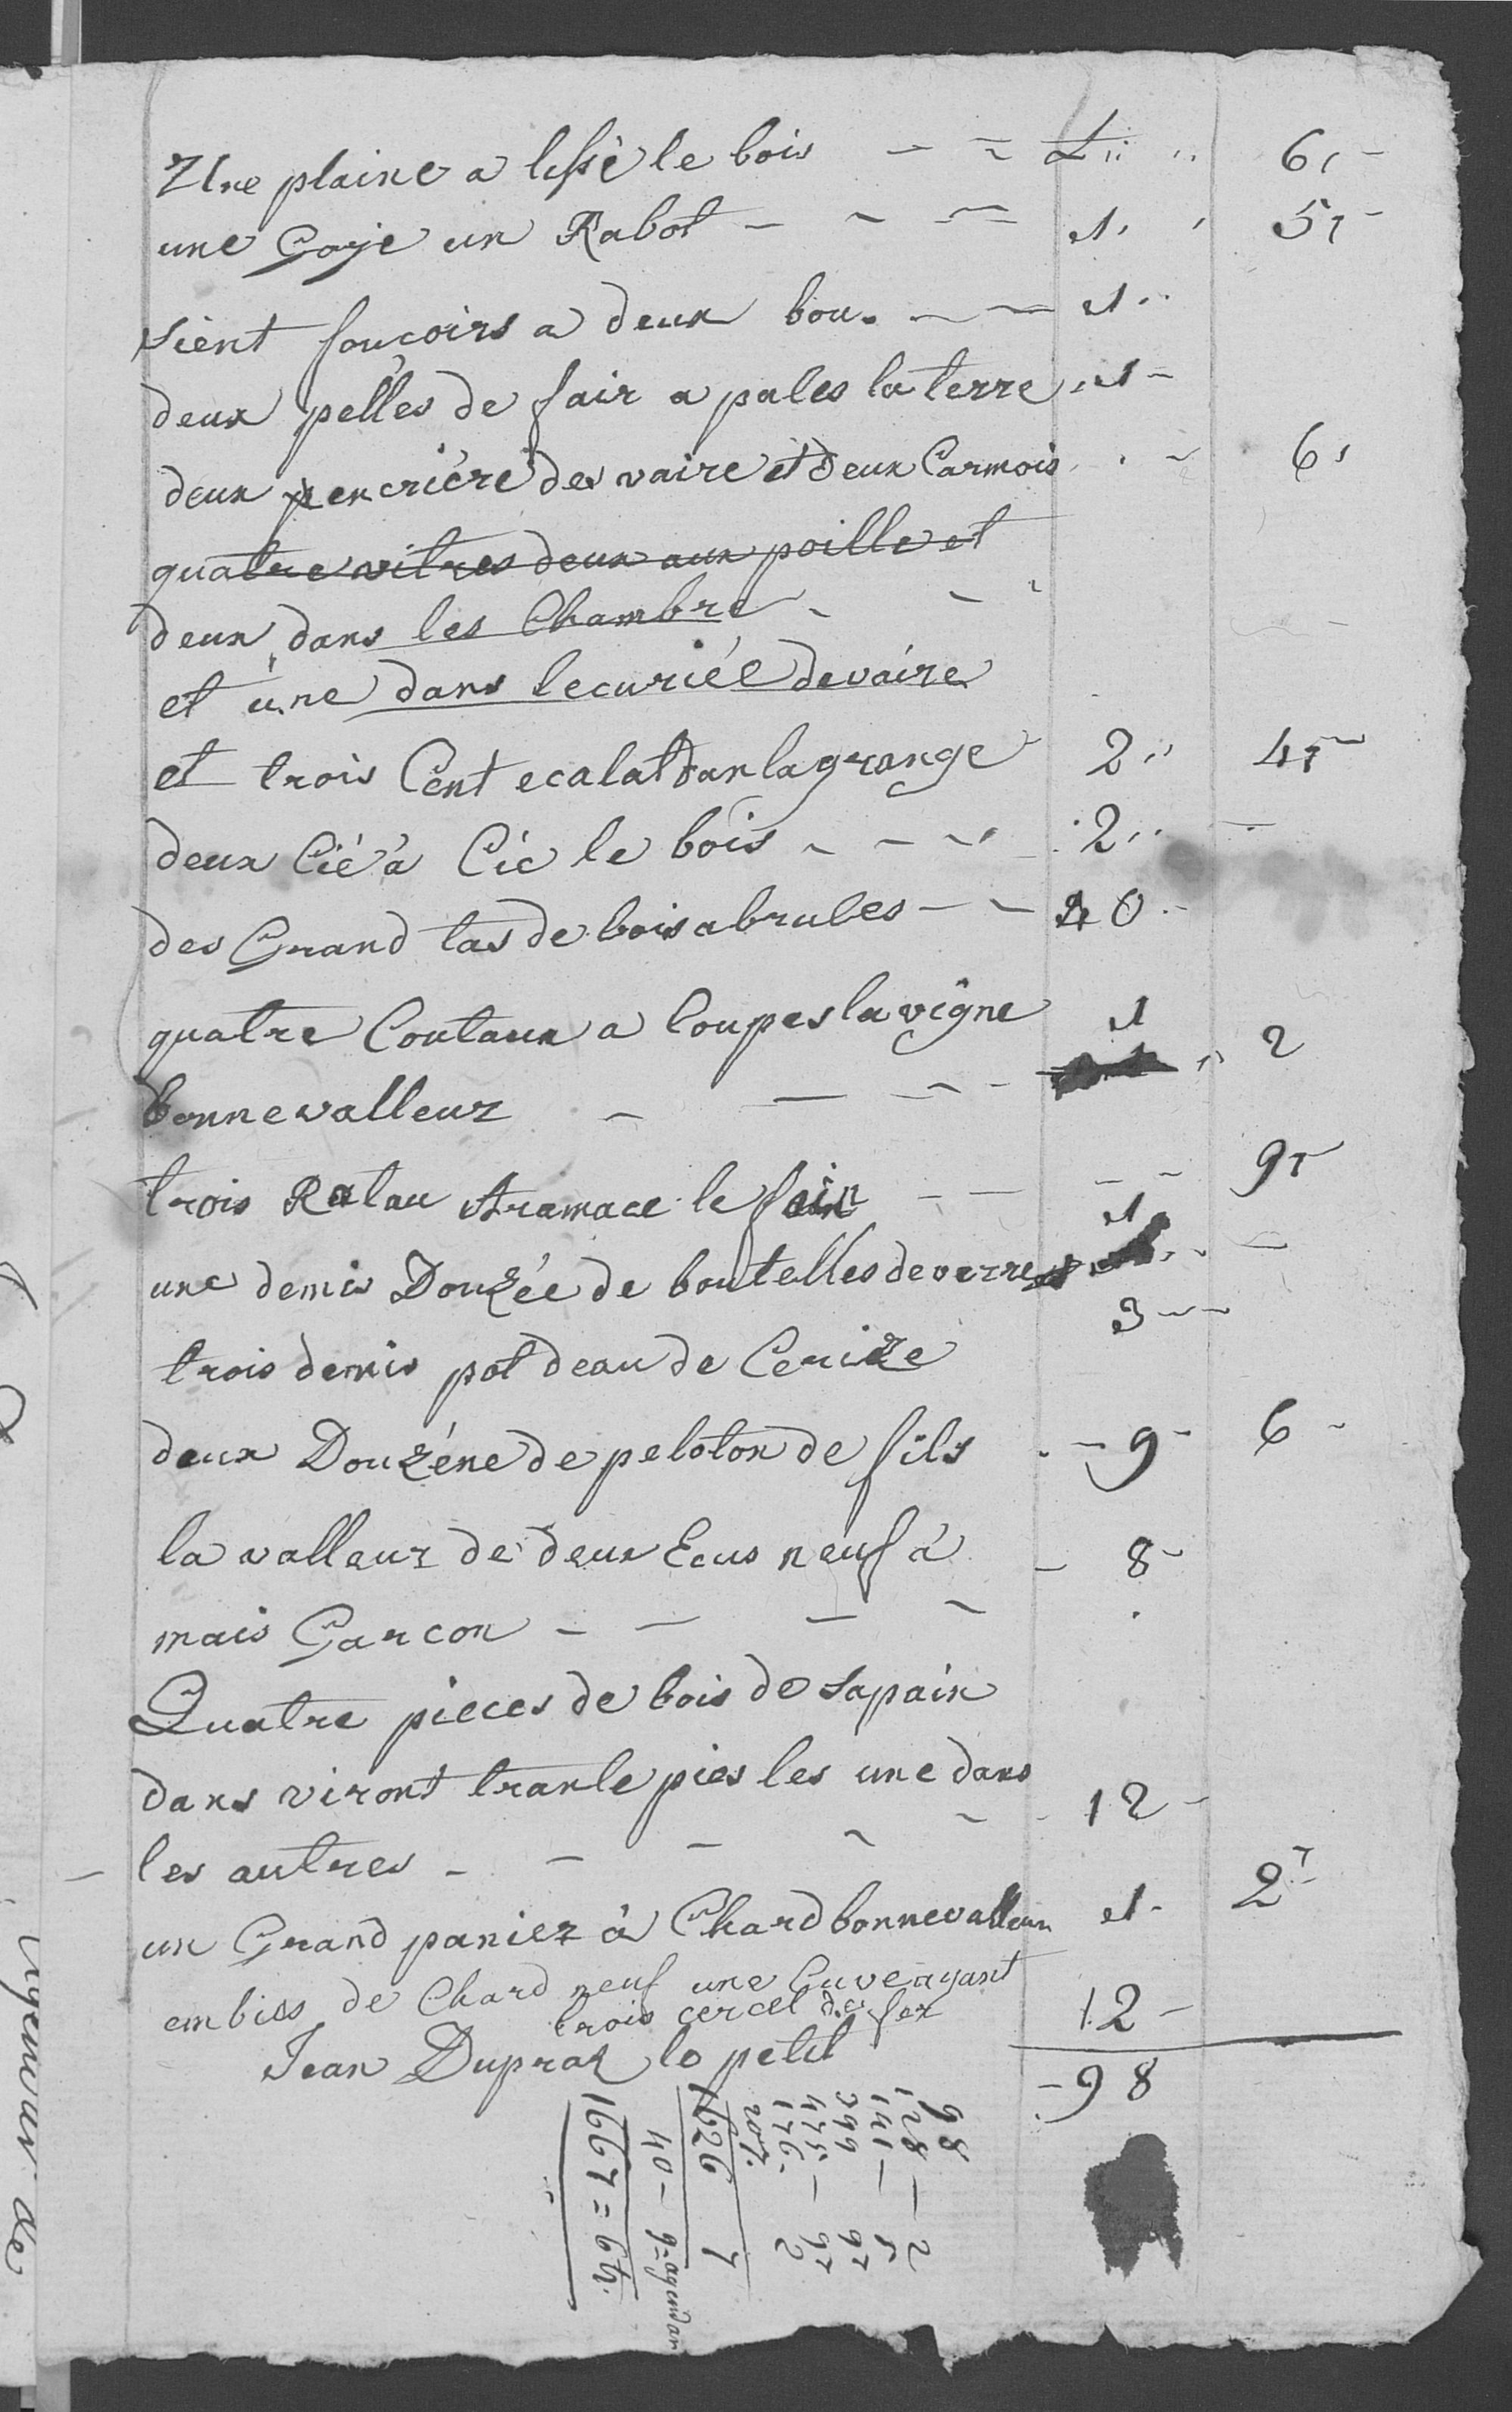 Une plaine a lissé le bois – ~ L " " 6 , –
une Goye un Rabot – ~ – 1 , , 5 , –
sient foucoirs a deux bou. – – 1 "
deux pelles de fair a pales la terre 1 –
deux pencriére des vaire et deux Carmois . ~ 6 ,
quatre vitres deux aux poille et
deux dans les Chambre ~ – ~
et une dans lecuriée de vaire
et trois Cent ecalat dan la grange 2 " 4 , –
deux Cié à Cié le bois ~ – ~ 2 " –
des Grand tas de bois a brules – – 40 –
quatre Coutaux a Coupes la vigne 1
bonne valleur ~ – ~ – " 2
trois Ratau Aramace le foin – – – – 9 , –
une demis Douzée de boutelles de verre 1 – –
trois demis pot deau de Cerize 3 – –
deux Douzéne de peloton de fils . – 9 – 6 –
la valleur de deux Ecus neuf à – 8 –
mais Garcon – – – ~
Quatre pieces de bois de sapain
dans viront trante pies les une dans
– les autres – – – ~ ~ 12 –
un Grand panier à Chard bonne valleur 1 – 2 , –
embies de Chard neuf une Cuve ayant
trois cercel de fer 12 –
Jean Dupraz le petit
– 98
98
128 – 2
141 – 5
399 97
475 – 97
176 – 2
207
1626 7
40 – 9 =
1667 = 6